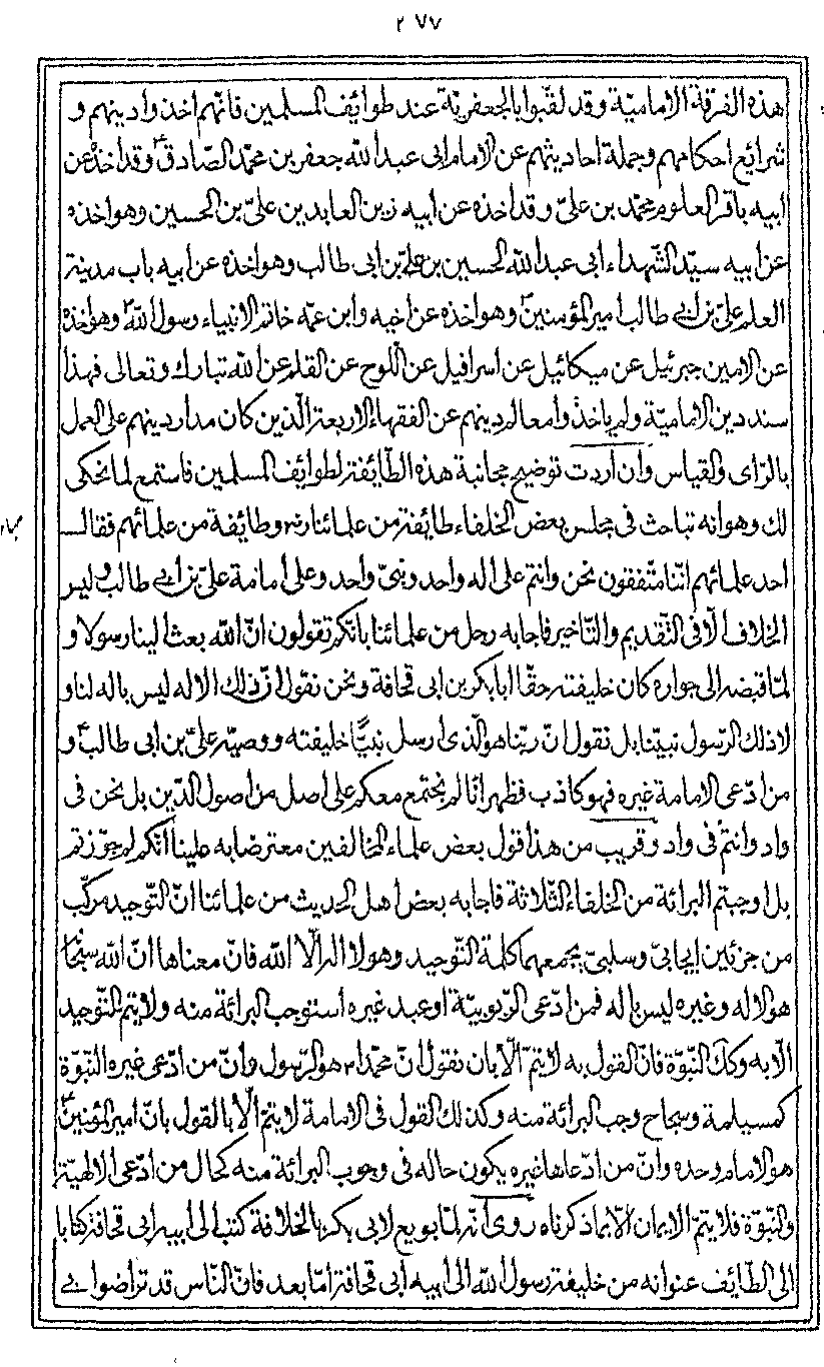 ٢٧٧
هذه الفرقة الامامیّة وقد لقّبوا بالجعفریّة عند طوایف المسلمین فانّهم اخذوا دینهم و
شرایع احکامهم وجملة احادیثهم عن الامام ابی عبد الله جعفر بن محمّد الصّادق ع وقد اخذه عن
ابیه باقر العلوم محمّد بن علیّ وقد اخذه عن ابیه زین العابدین علیّ بن الحسین وهو اخذه
عن ابیه سیّد الشّهداء ابی عبد الله الحسین بن علیّ بن ابی طالب وهو اخذه عن ابیه باب مدینة
العلم علیّ بن ابی طالب امیر المؤمنین ع وهو اخذه عن اخیه وابن عمّه خاتم الانبیاء رسول الله ص وهو اخذه
عن الامین جبرئیل عن میکائیل عن اسرافیل عن اللّوح عن القلم عن الله تبارك وتعالی فهذا
سند دین الامامیّة ولم یاخذوا معالم دینهم عن الفقهاء الاربعة الّذین کان مدار دینهم علی العمل
بالرّای والقیاس وان اردت توضیح مجانبة هذه الطّائفة لطوایف المسلمین فاستمع لما نحکی
لك وهو انه تباحث فی مجلس بعض الخلفاء طائفة من علمائنا ره وطائفة من علمائهم فقال
احد علمائهم انّنا متّفقون نحن وانتم علی اله واحد ونبیّ واحد وعلی امامة علیّ بن ابی طالب ولیس
الخلاف الّا فی التّقدیم والتّاخیر فاجابه رجل من علمائنا بانّکم تقولون انّ الله بعث الینا رسولا و
لمّا قبضه الی جواره کان خلیفته حقّا ابا بکر بن ابی قحافة ونحن نقول انّ ذلك الاله لیس باله لنا و
لا ذلك الرّسول نبیّنا بل نقول انّ ربّنا هو الّذی ارسل نبیّا خلیفته ووصیّه علیّ بن ابی طالب ع و
من ادّعی الامامة غیره فهو کاذب فظهر انّا لم نجتمع معکم علی اصل من اصول الدّین بل نحن فی
واد وانتم فی واد وقریب من هذا قول بعض علماء المخالفین معترضا به علینا انّکم لم جوّزتم
بل اوجبتم البرائة من الخلفاء الثّلاثة فاجابه بعض اهل الحدیث من علمائنا انّ التّوحید مرکّب
من جزئین ایجابیّ وسلبیّ یجمعهما کلمة التّوحید وهو لا اله الّا الله فانّ معناها انّ الله سبحا
هو الاله وغیره لیس باله فمن ادّعی الرّبوبیّة او عبد غیره استوجب البرائة منه ولا یتمّ التّوحید
الّا به وکك النّبوّة فانّ القول به لا یتمّ الّا بان نقول انّ محمّدا ص هو الرّسول وانّ من ادّعی غیره النّبوّة
کمسیلمة وسجاح وجب البرائة منه وکذلك القول فی الامامة لا یتمّ الّا بالقول بانّ امیر المؤمنین ع
هو الامام وحده وانّ من ادّعاها غیره یکون حاله فی وجوب البرائة منه کحال من ادّعی الالهیّة
والنّبوّة فلا یتمّ الایمان الّا بما ذکرناه روی انّه لمّا بویع لابی بکر بالخلافة کتب الی ابیه ابی قحافة کتابا
الی الطّائف عنوانه من خلیفة رسول الله الی ابیه ابی قحافة امّا بعد فانّ النّاس قد تراضوا بی